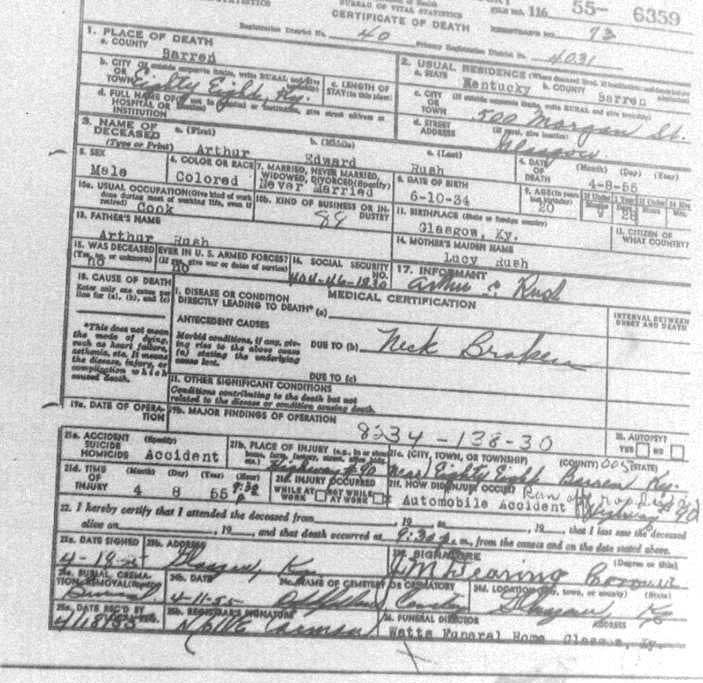 BUREAU OF VITAL STATISTICS
CERTIFICATE OF DEATH
FILE NO. 116 55- 6359
Registration District No. 40 Primary Registration District No. 4031
1. PLACE OF DEATH
a. COUNTY Barren
2. USUAL RESIDENCE
a. STATE Kentucky b. COUNTY Barren
b. CITY OR TOWN Eighty Eight, Ky.
c. LENGTH OF STAY (in this place)
c. CITY OR TOWN
d. FULL NAME OF HOSPITAL OR INSTITUTION
d. STREET ADDRESS 500 Morgan St.
Glasgow
3. NAME OF DECEASED (Type or Print)
a. (First) Arthur b. (Middle) Edward c. (Last) Rush
4. DATE OF DEATH (Month) (Day) (Year) 4-8-55
5. SEX Male
6. COLOR OR RACE Colored
7. MARRIED, NEVER MARRIED, WIDOWED, DIVORCED (Specify) Never Married
8. DATE OF BIRTH 6-10-34
9. AGE (In years last birthday) 20
10a. USUAL OCCUPATION (Give kind of work done during most of working life, even if retired) Cook
10b. KIND OF BUSINESS OR INDUSTRY
11. BIRTHPLACE (State or foreign country) Glasgow, Ky.
12. CITIZEN OF WHAT COUNTRY?
13. FATHER'S NAME Arthur Rush
14. MOTHER'S MAIDEN NAME Lucy Rush
15. WAS DECEASED EVER IN U. S. ARMED FORCES?
(Yes, no, or unknown) no (If yes, give war or dates of service) no
16. SOCIAL SECURITY NO.
17. INFORMANT Arthur E Rush
18. CAUSE OF DEATH
Enter only one cause per line for (a), (b), and (c)
MEDICAL CERTIFICATION
INTERVAL BETWEEN ONSET AND DEATH
I. DISEASE OR CONDITION DIRECTLY LEADING TO DEATH* (a)
*This does not mean the mode of dying, such as heart failure, asthenia, etc. It means the disease, injury, or complication which caused death.
ANTECEDENT CAUSES
Morbid conditions, if any, giving rise to the above cause (a) stating the underlying cause last.
DUE TO (b) Neck Broken
DUE TO (c)
II. OTHER SIGNIFICANT CONDITIONS
Conditions contributing to the death but not related to the disease or condition causing death.
19a. DATE OF OPERATION
19b. MAJOR FINDINGS OF OPERATION
8234-138-30
20. AUTOPSY? YES NO
21a. ACCIDENT SUICIDE HOMICIDE (Specify) Accident
21b. PLACE OF INJURY Highway #90
21c. (CITY, TOWN, OR TOWNSHIP) (COUNTY) (STATE)
near Eighty Eight Barren Ky.
21d. TIME OF INJURY (Month) (Day) (Year) (Hour) 4 8 55 9:30 p
21e. INJURY OCCURRED WHILE AT WORK NOT WHILE AT WORK
21f. HOW DID INJURY OCCUR? Ran off road
Automobile Accident Highway #90
22. I hereby certify that I attended the deceased from 19 to 19, that I last saw the deceased
alive on 19, and that death occurred at 9:30 p.m., from the causes and on the date stated above.
23a. DATE SIGNED 4-18-55
23b. ADDRESS Glasgow, Ky
23c. SIGNATURE (Degree or title) Coroner
24a. BURIAL, CREMATION, REMOVAL (Specify)
24b. DATE 4-11-55
24c. NAME OF CEMETERY OR CREMATORY
24d. LOCATION (City, town, or county) (State) Glasgow Ky
25a. DATE REC'D BY
25b. REGISTRAR'S SIGNATURE
26. FUNERAL DIRECTOR ADDRESS
Watts Funeral Home, Glasgow, Ky.